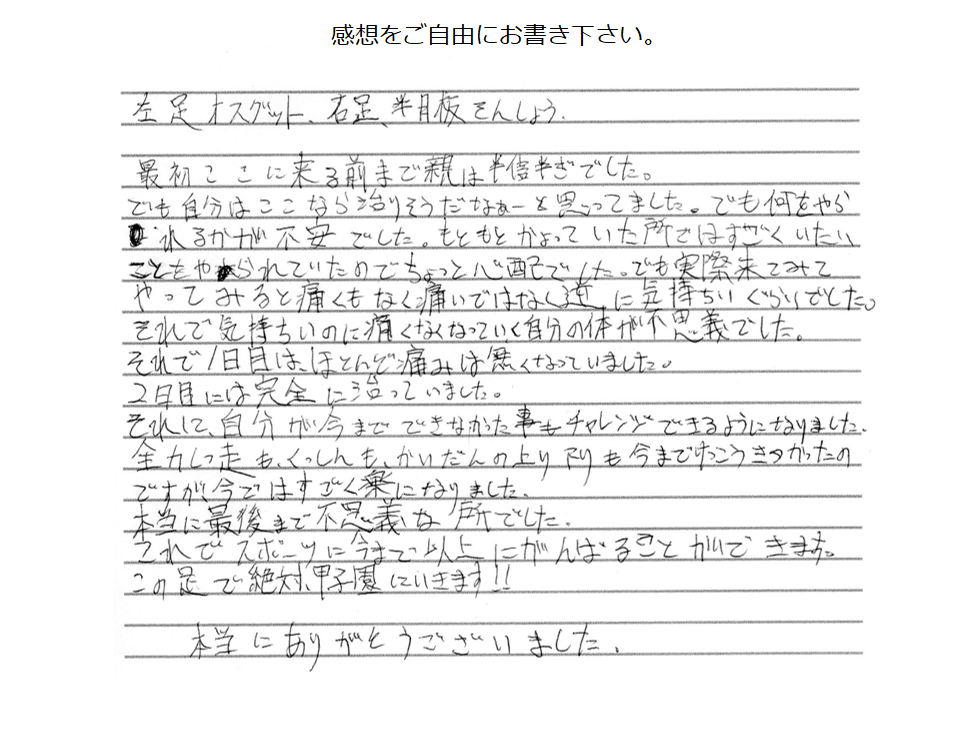 感想をご自由にお書き下さい。
左足オスグット、右足、半月板そんしょう.
最初ここに来る前まで親は半信半ぎでした。
でも自分はここなら治りそうだなぁーと思ってました。でも何をやら
れるかが不安でした。もともとかよっていた所ではすごくいたい
ことをやられていたのでちょっと心配でした。でも実際来てみて
やってみると痛くもなく痛いではなく逆に気持ちいぐらいでした。
それで気持ちいのに痛くなくなっていく自分の体が不思義でした。
それで1日目は、ほとんど痛みは無くなっていました。
2日目には完全に治っていました。
そして、自分が今までできなかった事もチャレンジできるようになりました.
全力しっ走も、くっしんも、かいだんの上り下りも今までけっこうきつかったの
ですが、今ではすごく楽になりました.
本当に最後まで不思義な所でした.
これでスポーツに今まで以上にがんばることができます。
この足で絶対、甲子園にいきます!!
本当にありがとうございました.